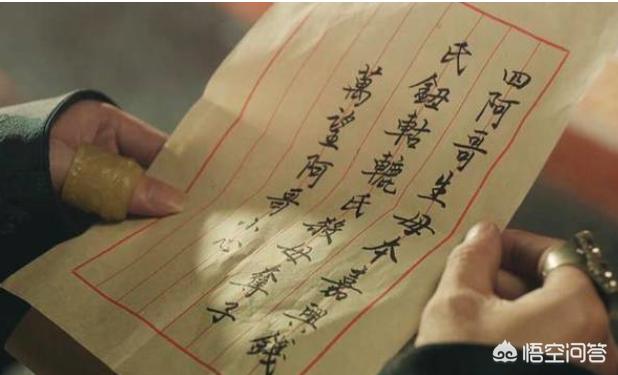 四阿哥生母本嘉興錢
氏鈕祜祿氏殺母奪子
萬望阿哥小心
悟空问答